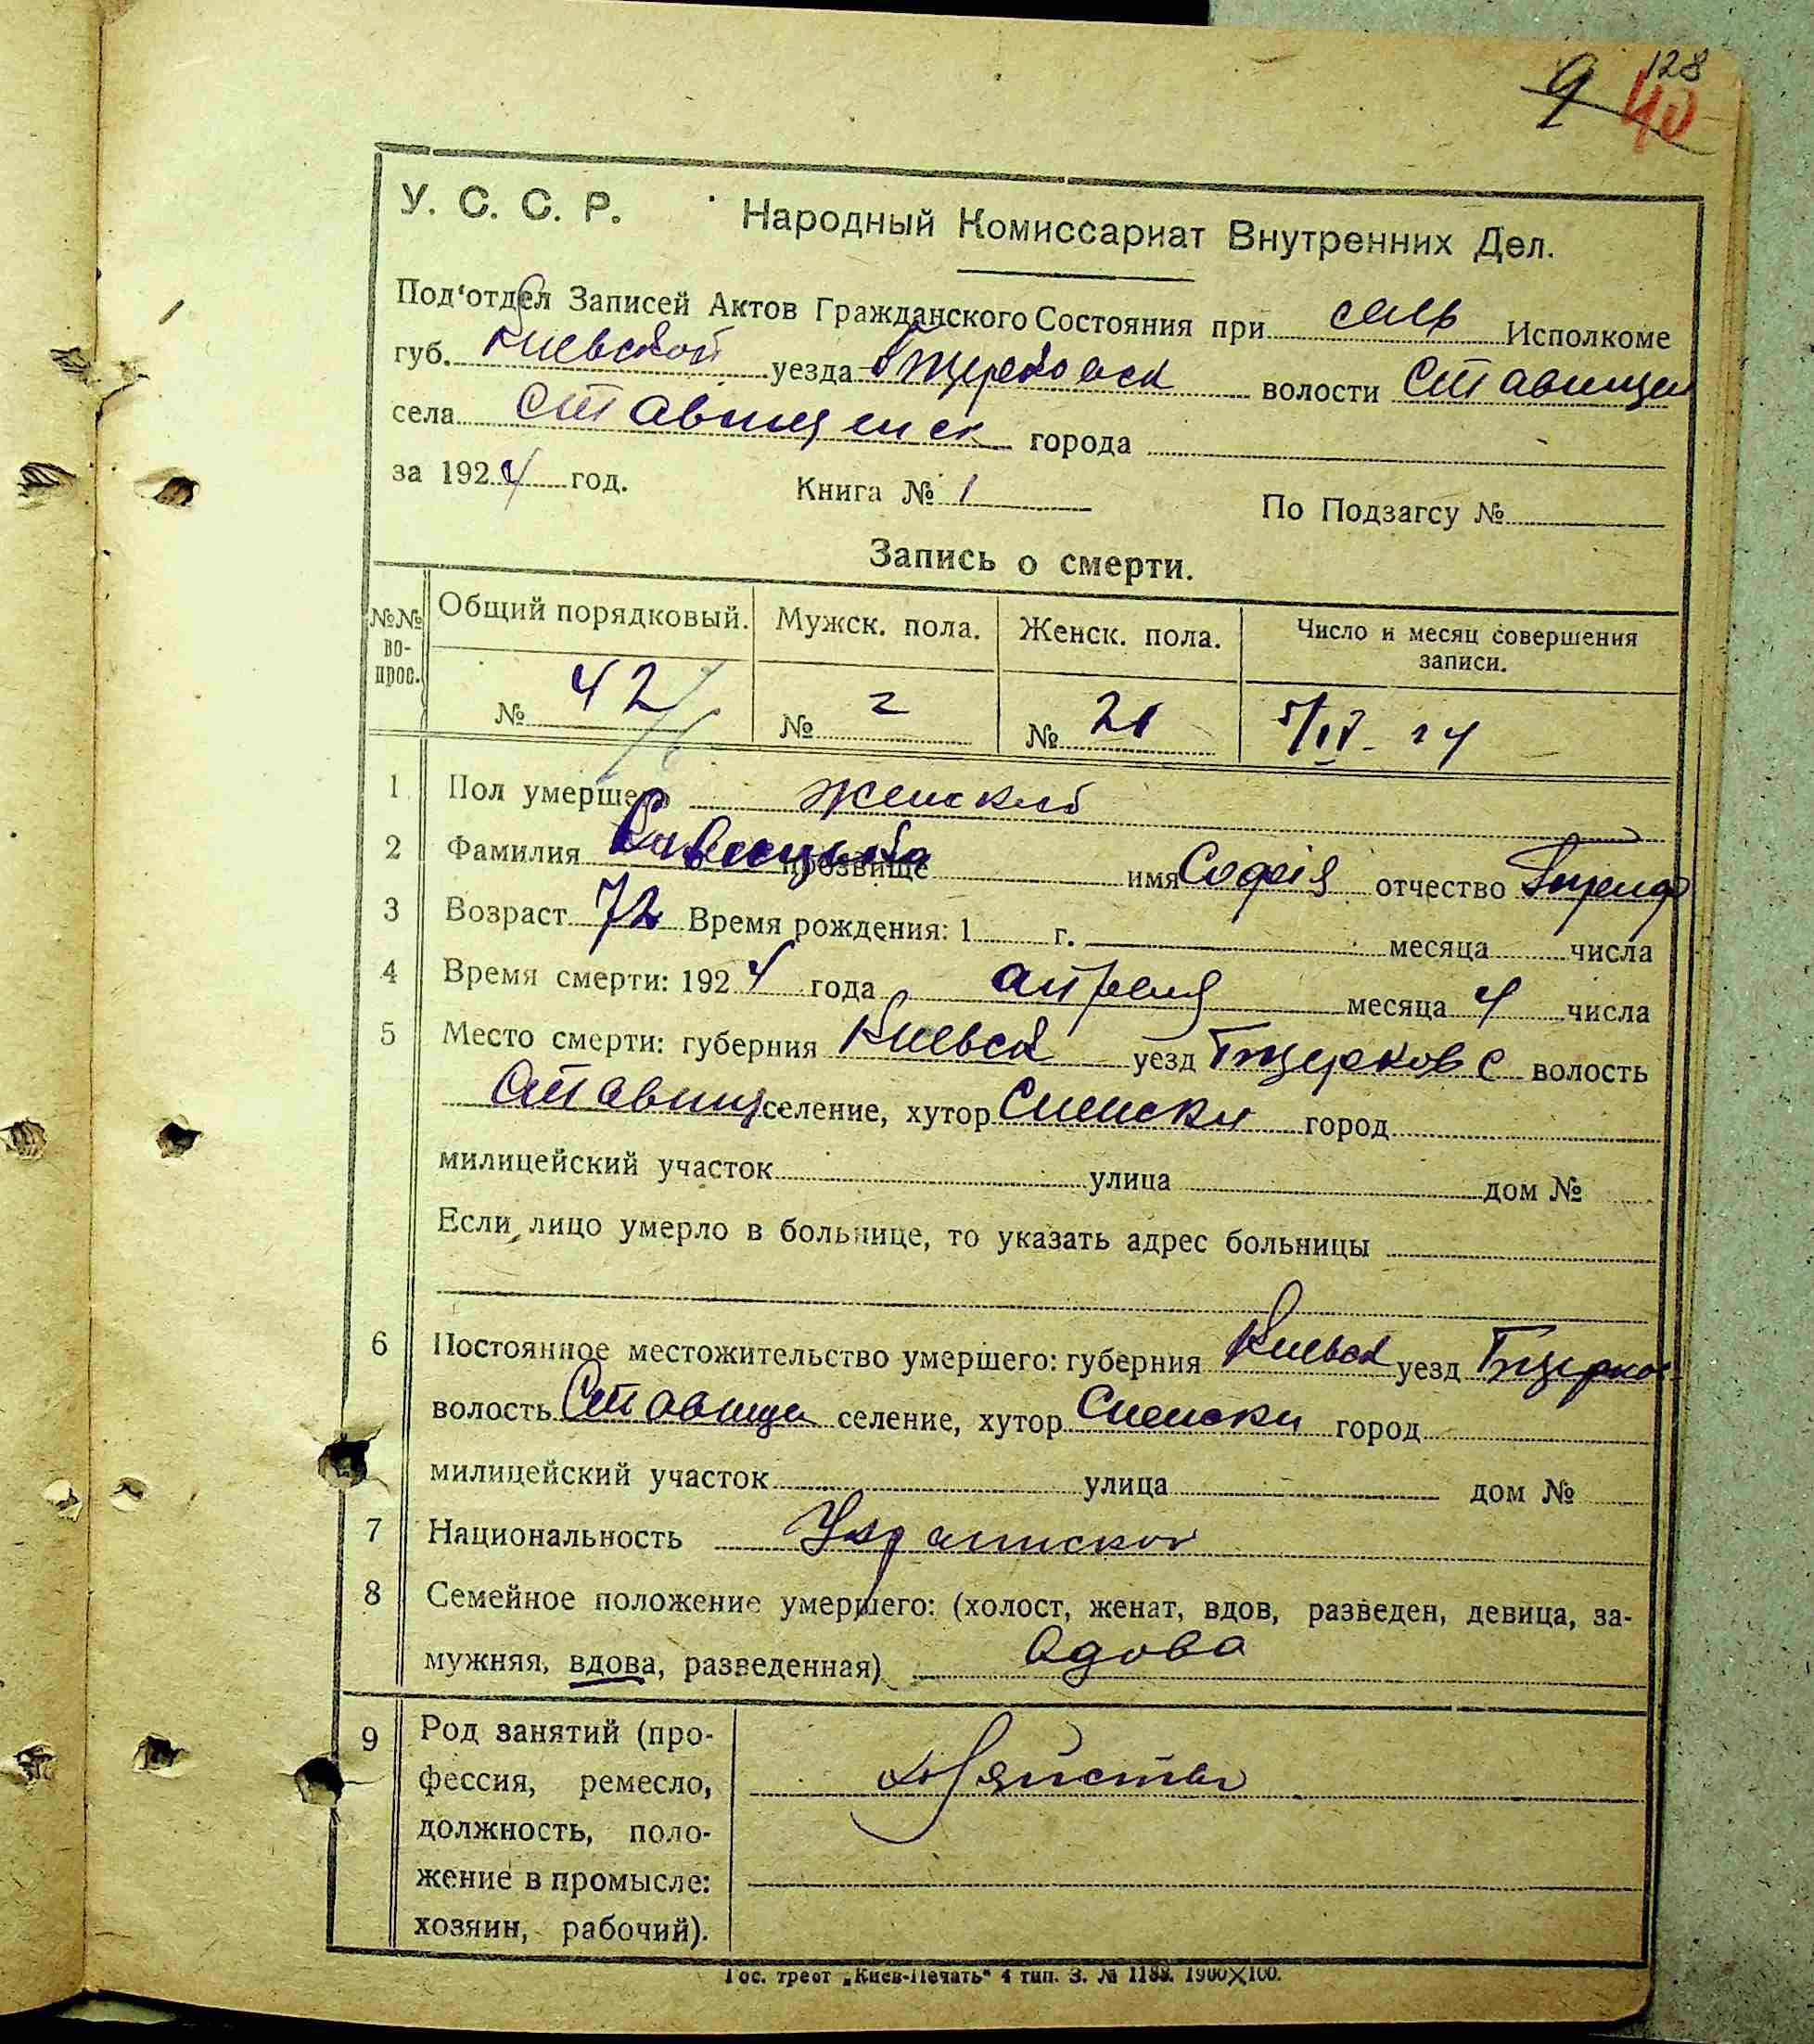 128
9 40
У. С. С. Р. Народный Комиссариат Внутренних Дел.
Под‘отдел Записей Актов Гражданского Состояния при сель Исполкоме
губ. Киевской уезда Бтцерковск волости Ставище
села Ставищенск города
за 1924 год. Книга № 1 По Подзагсу №
Запись о смерти.
№№ во-прос. Общий порядковый. Мужск. пола. Женск. пола. Число и месяц совершения записи.
№ 42 № № 21 5/IV - 24
1 Пол умершего женский
2 Фамилия прозвище имя Софія отчество
3 Возраст 72 Время рождения: 1 г. месяца числа
4 Время смерти: 1924 года апреля месяца 4 числа
5 Место смерти: губерния Киевск уезд Бтцерковс волость
Ставищ селение, хутор город
милицейский участок улица дом №
Если лицо умерло в больнице, то указать адрес больницы
6 Постоянное местожительство умершего: губерния Киевск уезд Бтцерков
волость Ставище селение, хутор город
милицейский участок улица дом №
7 Национальность
8 Семейное положение умершего: (холост, женат, вдов, разведен, девица, за-
мужняя, вдова, разведенная) вдова
9 Род занятий (про-
фессия, ремесло,
должность, поло-
жение в промысле:
хозяин, рабочий).
Гос. трест „Киев-Печать“ 4 тип. З. № 1188. 1900×100.